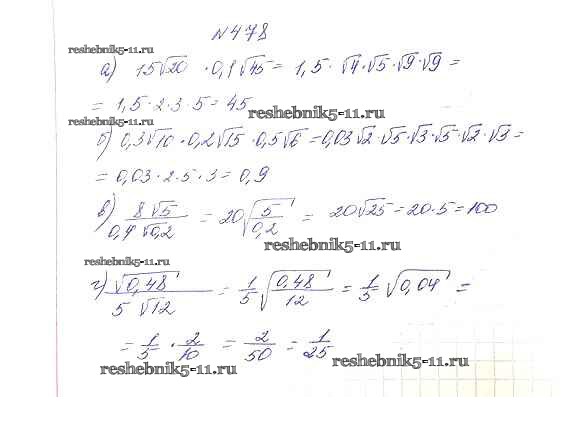 №478
reshebnik5-11.ru
а) 15√20 · 0,1√45 = 1,5 · √4 · √5 · √9 · √9 =
= 1,5 · 2 · 3 · 5 = 45
reshebnik5-11.ru
reshebnik5-11.ru
б) 0,3√10 · 0,2√15 · 0,5√6 = 0,03√2 · √5 · √3 · √5 · √2 · √3 =
= 0,03 · 2 · 5 · 3 = 0,9
reshebnik5-11.ru
в) 8√5 / 0,4√0,2 = 20√(5/0,2) = 20√25 = 20·5 = 100
reshebnik5-11.ru
reshebnik5-11.ru
г) √0,48 / 5√12 = 1/5 √(0,48/12) = 1/5 √0,04 =
= 1/5 · 2/10 = 2/50 = 1/25
reshebnik5-11.ru
reshebnik5-11.ru